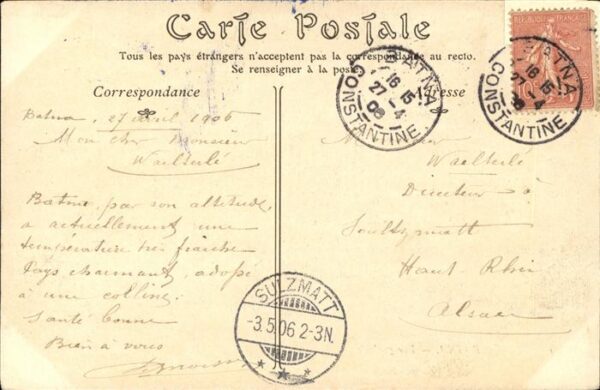 Carte Postale
Tous les pays étrangers n'acceptent pas la correspondance au recto.
Se renseigner à la poste
Correspondance
Adresse
Batna, 27 avril 1906
Mon cher Monsieur
Waelterlé
Batna, par son altitude,
a actuellement une
température très fraiche
Pays charmant, adossé
à une colline.
Santé bonne
Bien à vous
Monsieur
Waelterlé
Directeur à
Soultzmatt
Haut Rhin
Alsace
BATNA
16 15
27 -4
06
CONSTANTINE
REPUBLIQUE FRANÇAISE
10
BATNA
16 15
27 -4
CONSTANTINE
SULZMATT
-3.5.06 2-3N.